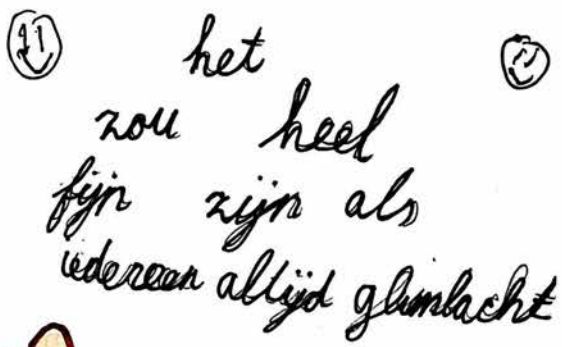 het
zou heel
fijn zijn als
iedereen altijd glimlacht